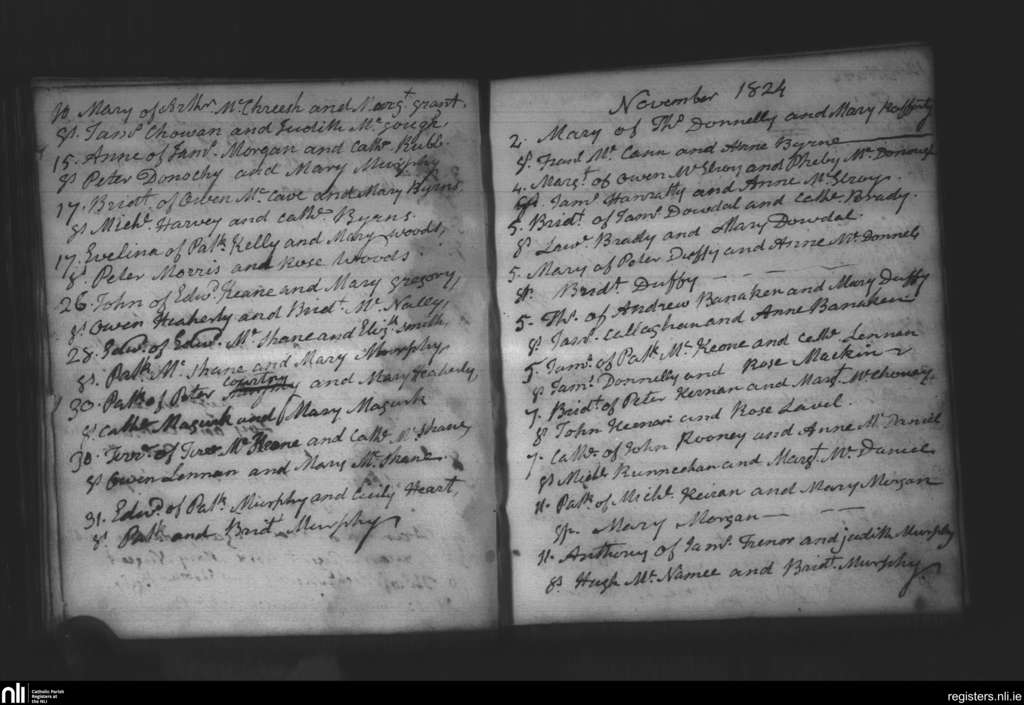 10 Mary of Arthr. McChreesh and Margt. grant.
Ss. Jams. Chowan and Judith Mc.gough,
15. Anne of Jams. Morgan and Cathe.
Ss Peter Donochy and Mary Murphy
17. Bridt. of Owen Mc. Cave and Mary Byrns,
Ss Michl. Harvey and Cathe. Byrns.
17. Evelina of Patk. Kelly and Mary woods,
Ss. Peter Morris and Rose Woods.
26. John of Edwd. Keane and Mary gregory,
Ss. Owen Heaherty and Bridt. Mc. Nalley,
28. Edwd. of Edwd. Mc. Shane and Elizth. Smith,
Ss. Patk. Mc. Shane and Mary Murphy
30. Patk. of Peter Courtny and Mary Heaherty,
Ss. Cathe. Magurk and Mary Magurk
30. Terre. of Terre Mc. Keone and Cathe. Mc. Shane,
Ss Owen Lennan and Mary Mc. Shane.
31. Edwd. of Patk. Murphy and Cecily Heart,
Ss. Patk. and Bridt. Murphy
November 1824
2. Mary of Ths. Donnelly and Mary Rafferty
Ss. Frans. Mc. Cann and Anne Byrne
4. Margt. of Owen McElroy and Pheby Mc. Donough
Ss. Jams. Hanratty and Anne Mc. Elroy.
5. Bridt. of Jams. Dowdal and Cathe. Brady.
Ss. Lawr. Brady and Mary Dowdal.
5. Mary of Peter Duffy and Anne Mc. Donnel
Sp. Bridt. Duffy
5. Ths. of Andrew Banaken and Mary Duffy
Ss. Jams. Callaghan and Anne Banaken
5. Jams. of Patk. Mc. Keone and Cathe. Lennan
Ss Jams. Donnelly and Rose Mackin
7. Bridt. of Peter Kernan and Margt. Mc. Choney,
Ss John Keenan and Rose Lavel.
7. Cathe. of John Rooney and Anne Mc. Daniel
Ss Michl. Runneghan and Margt. Mc. Daniel
11. Patk. of Michl. Keiran and Mary Morgan
Sp. Mary Morgan
11. Anthony of Jams. Trenor and judith Murphy
Ss. Hugh Mc. Namee and Bridt. Murphy
nli
Catholic Parish
Registers at
the NLI
registers.nli.ie